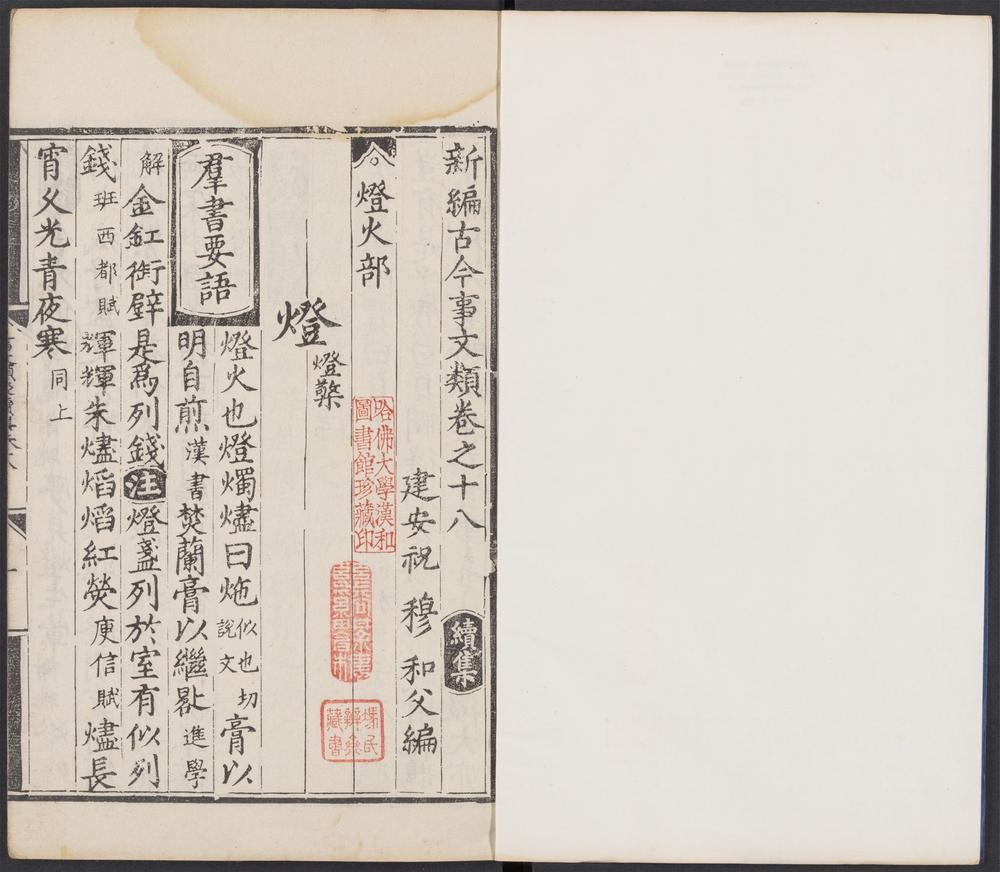 新編古今事文類卷之十八 續集
建安祝 穆 和父編
燈火部
燈 燈檠
羣書要語 燈火也燈燭燼曰炧似也切說文膏以
明自煎漢書焚蘭膏以繼晷進學
解金釭銜壁是為列錢注燈盞列於室有似列
錢班西都賦輝輝朱燼焰焰紅熒庾信賦燼長
宵久光青夜寒同上
哈佛大學漢和
圖書館珍藏印
藏書